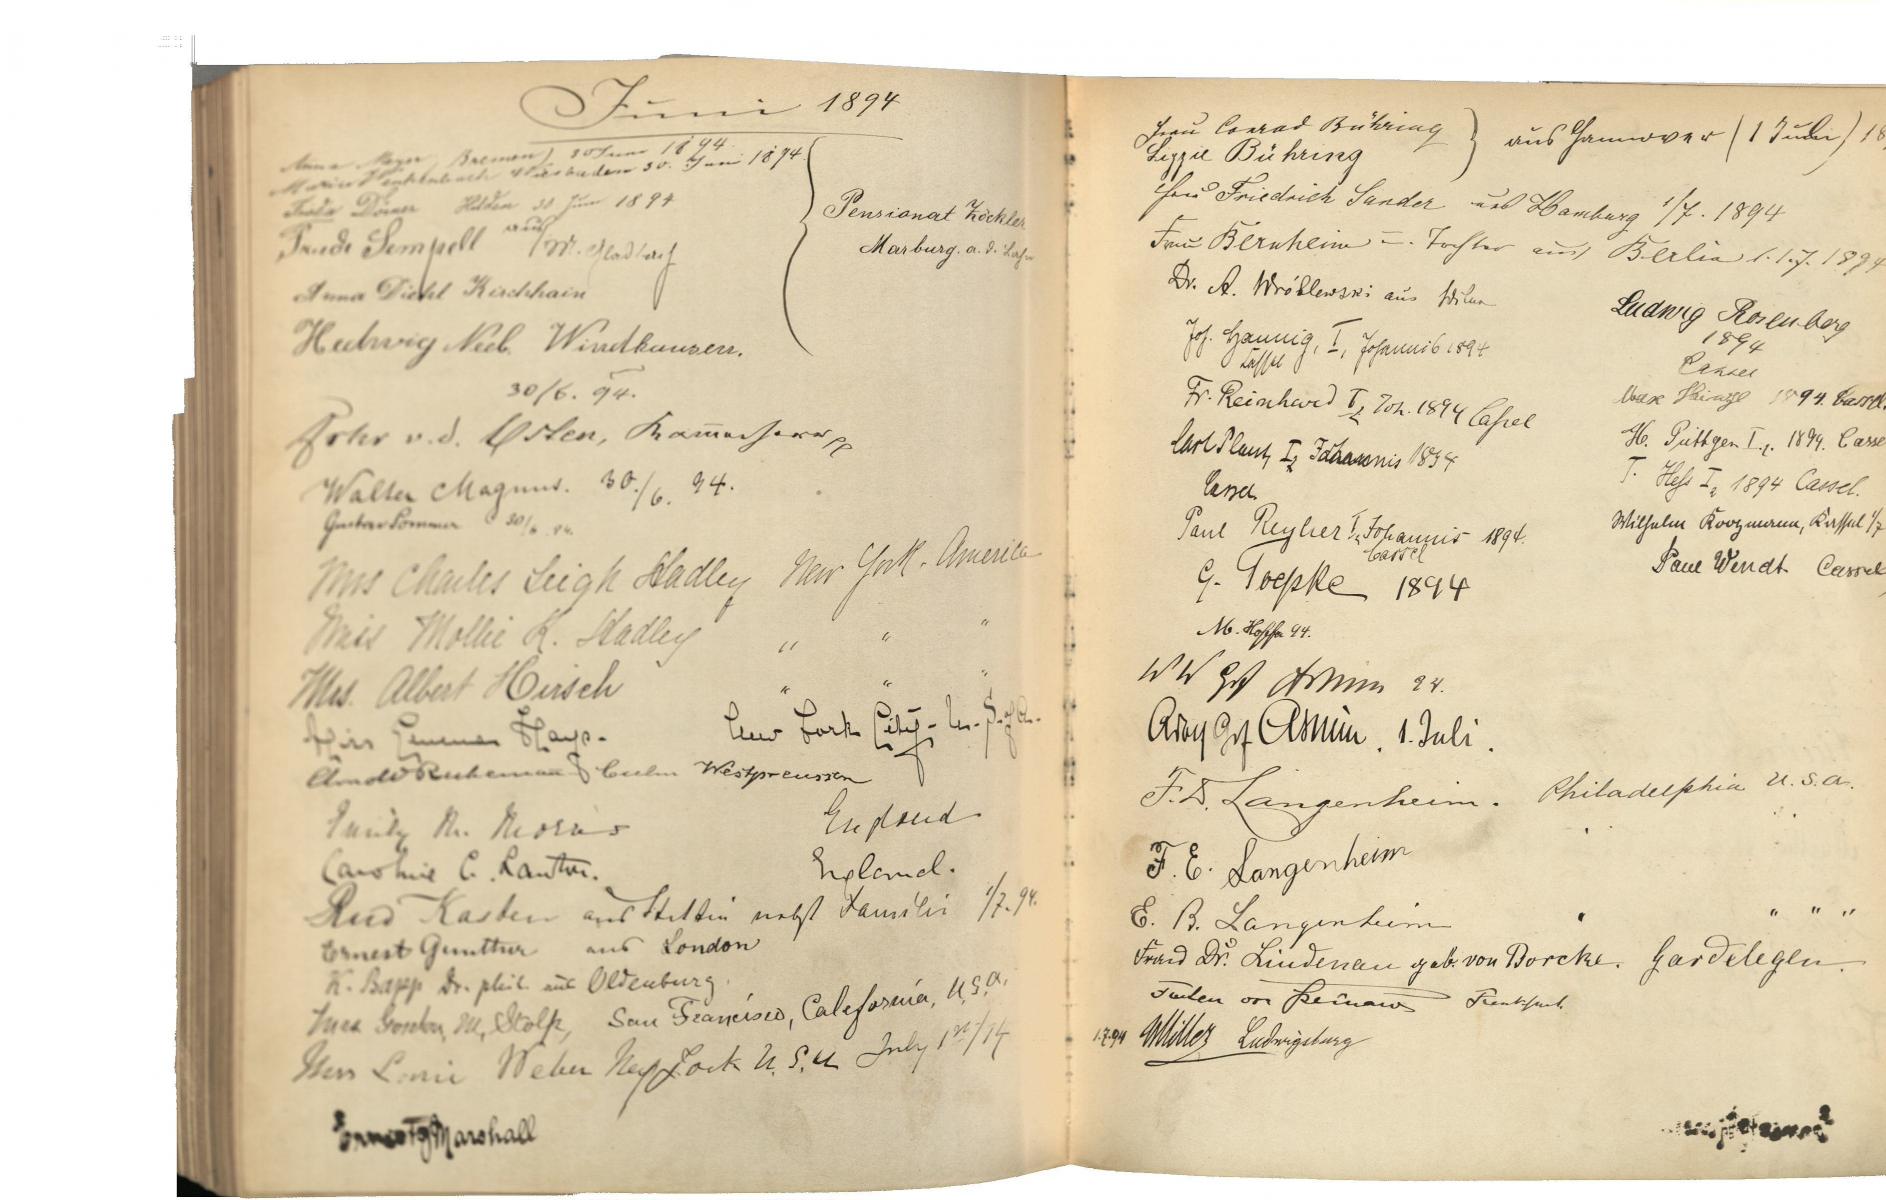 Juni 1894
Anna Meyer, Bremen, 30 Juni 1894.
Wiesbaden 30. Juni 1894
Dörner Hilden 30 Juni 1894
Sempell aus M. Gladbach
Pensionat Zöckler
Marburg. a. d. Lahn
Anna Diehl Kirchhain
Hedwig Neeb. Windhausen.
30/6. 94.
Frhr v. d. Osten, Kammerherr
Walter Magnus. 30./6. 94.
Gustav Sommer 30/6. 94.
Mrs Charles Leigh Hadley New York. America
Miss Mollie K. Hadley " " "
Mrs. Albert Hirsch " " "
Hays. New York City. U. S. of A.
Culm Westpreussen
Emily M. Morris England
Caroline C. England.
Rud Kasten aus Stettin nebst Familie 1/7. 94.
Ernest Gunther aus London
K. Bapp Dr. phil. aus Oldenburg.
Stolp, San Francisco, California, U.S.A.
Miss Weber New York U. S. A July 1st/94
Marshall
Frau Conrad Bühring
Lizzie Bühring
aus Hannover (1 Juli) 18
Frau Friedrich Sander aus Hamburg 1/7. 1894
Frau Bernheim u. Tochter aus Berlin 1.7. 1894
Dr. A. Wróblewski aus Wilna
Joh. Hannig, I, Johannis 1894
Cassel
Fr. Reinhard I2 Joh. 1894 Cassel
Carl Plaut, I2 Johannis 1894
Cassel.
Paul Reyher I2 Johannis 1894.
Cassel
G. Toepke 1894
M. 94.
Ludwig Rosenberg
1894
Cassel
Max 1894. Cassel.
H. Püttgen I2. 1894. Casse
T. Hess I2 1894 Cassel.
Wilhelm Koozmann, Kassel 1/7
Paul Wendt Cassel
W W Grf Arnim 94.
Grf Arnim. 1. Juli.
F. D. Langenheim. Philadelphia U.S.A.
F. E. Langenheim
E. B. Langenheim " " "
Frau Dr. Lindenau geb. von Borcke. Gardelegen.
von Frankfurt.
1.7.94 Miller Ludwigsburg